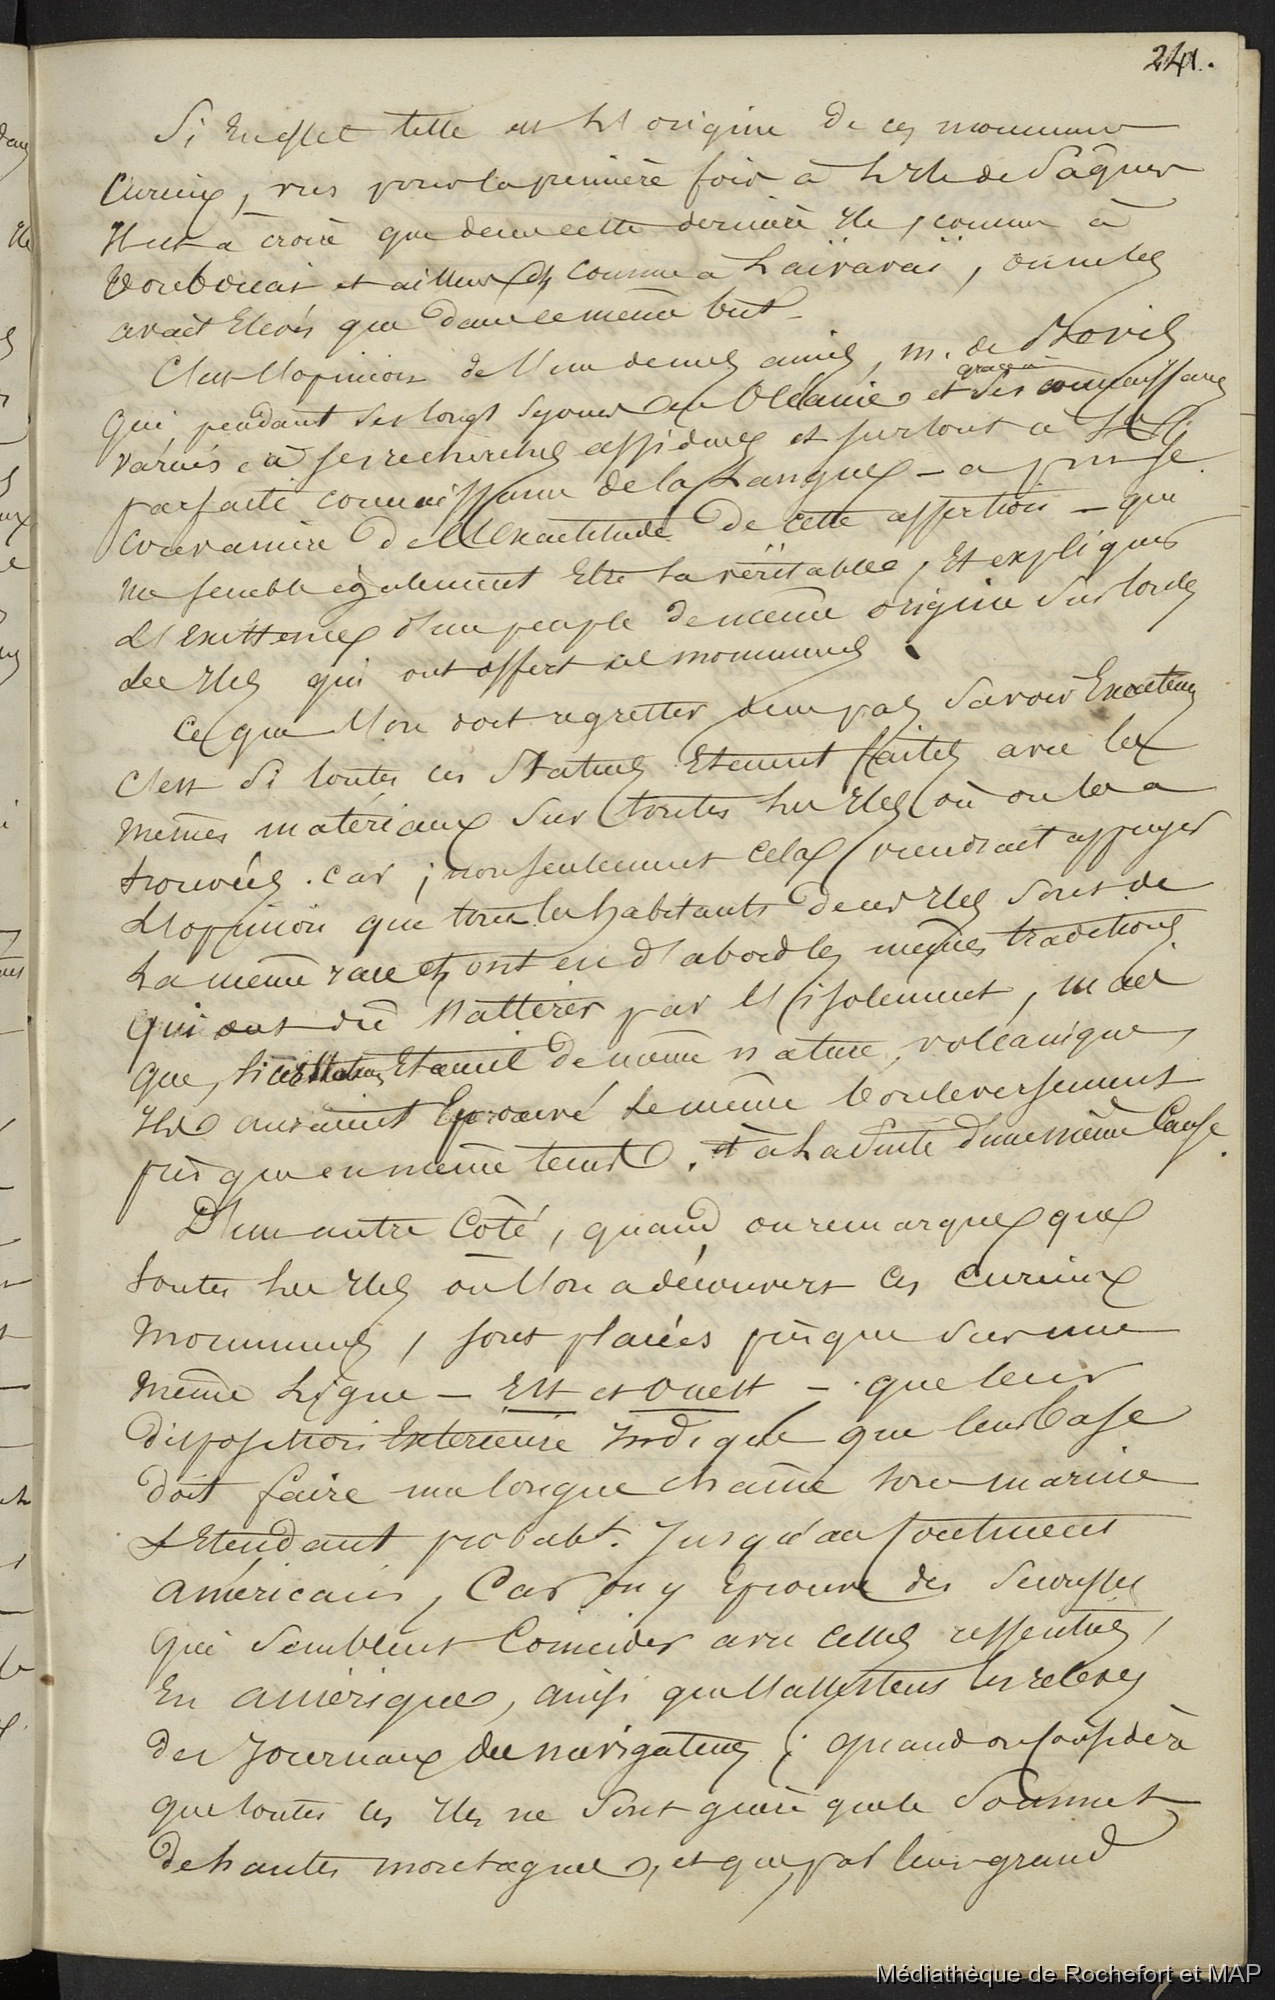 241.
Si En effet telle est L'origine de ces monuments
Curieux, vus pour la première fois à L'Ile de Pâques
Il est à croire que dans cette dernière Ile, comme à
et ailleurs, comme à Raïvavaï, on ne les
avait Elevés que dans le même but.
C'est L'opinion de L'un de mes amis, M. de Bovis
qui, pendant ses longs séjours en Océanie, et grace à ses connaissances
variés, à ses recherches assidues et surtout à
parfaite connaissance de la Langue – a pu se
convaincre de L'Exactitude de cette assertion – qui
me semble également Etre la véritable, Et expliquer
L'Existence d'un peuple de même origine sur toutes
les Iles qui ont offert ces monuments.
Ce que L'on doit regretter, c'est de ne pas Savoir Exactement
C'est Si toutes ces Statues Etaient faites avec les
mêmes matériaux Sur toutes les Iles où on les a
trouvées. car, non seulement cela viendrait appuyer
L'opinion que tous les habitants de ces Iles Sont de
La même race et ont eu d'abord les mêmes traditions
qui ont dû s'altérer par L'isolement, mais
que, Si ces Statues Etaient de même nature, volcanique,
Iles auraient Eprouvé Le même bouleversement
presque en même tems, et à La Suite d'une même Cause.
D'un autre Côté, quand on remarque que
toutes les Iles où L'on a découvert ces curieux
Monuments, sont placées presque Sur une
même Ligne – Est et Ouest – que leur
disposition Exterieure Indique que leur base
doit faire une longue chaîne sous marine
S'Etendant probabt. Jusqu'au Continent
américain, Car on y Eprouve des Secousses
qui Semblent Coïncider avec celles ressenties,
En amérique, ainsi que L'attestent les relevés
des Journaux des navigateurs; quand on considère
que toutes ces Iles ne Sont guère que le Sommet
de hautes montagnes, et que, par leur grand
Médiathèque de Rochefort et MAP